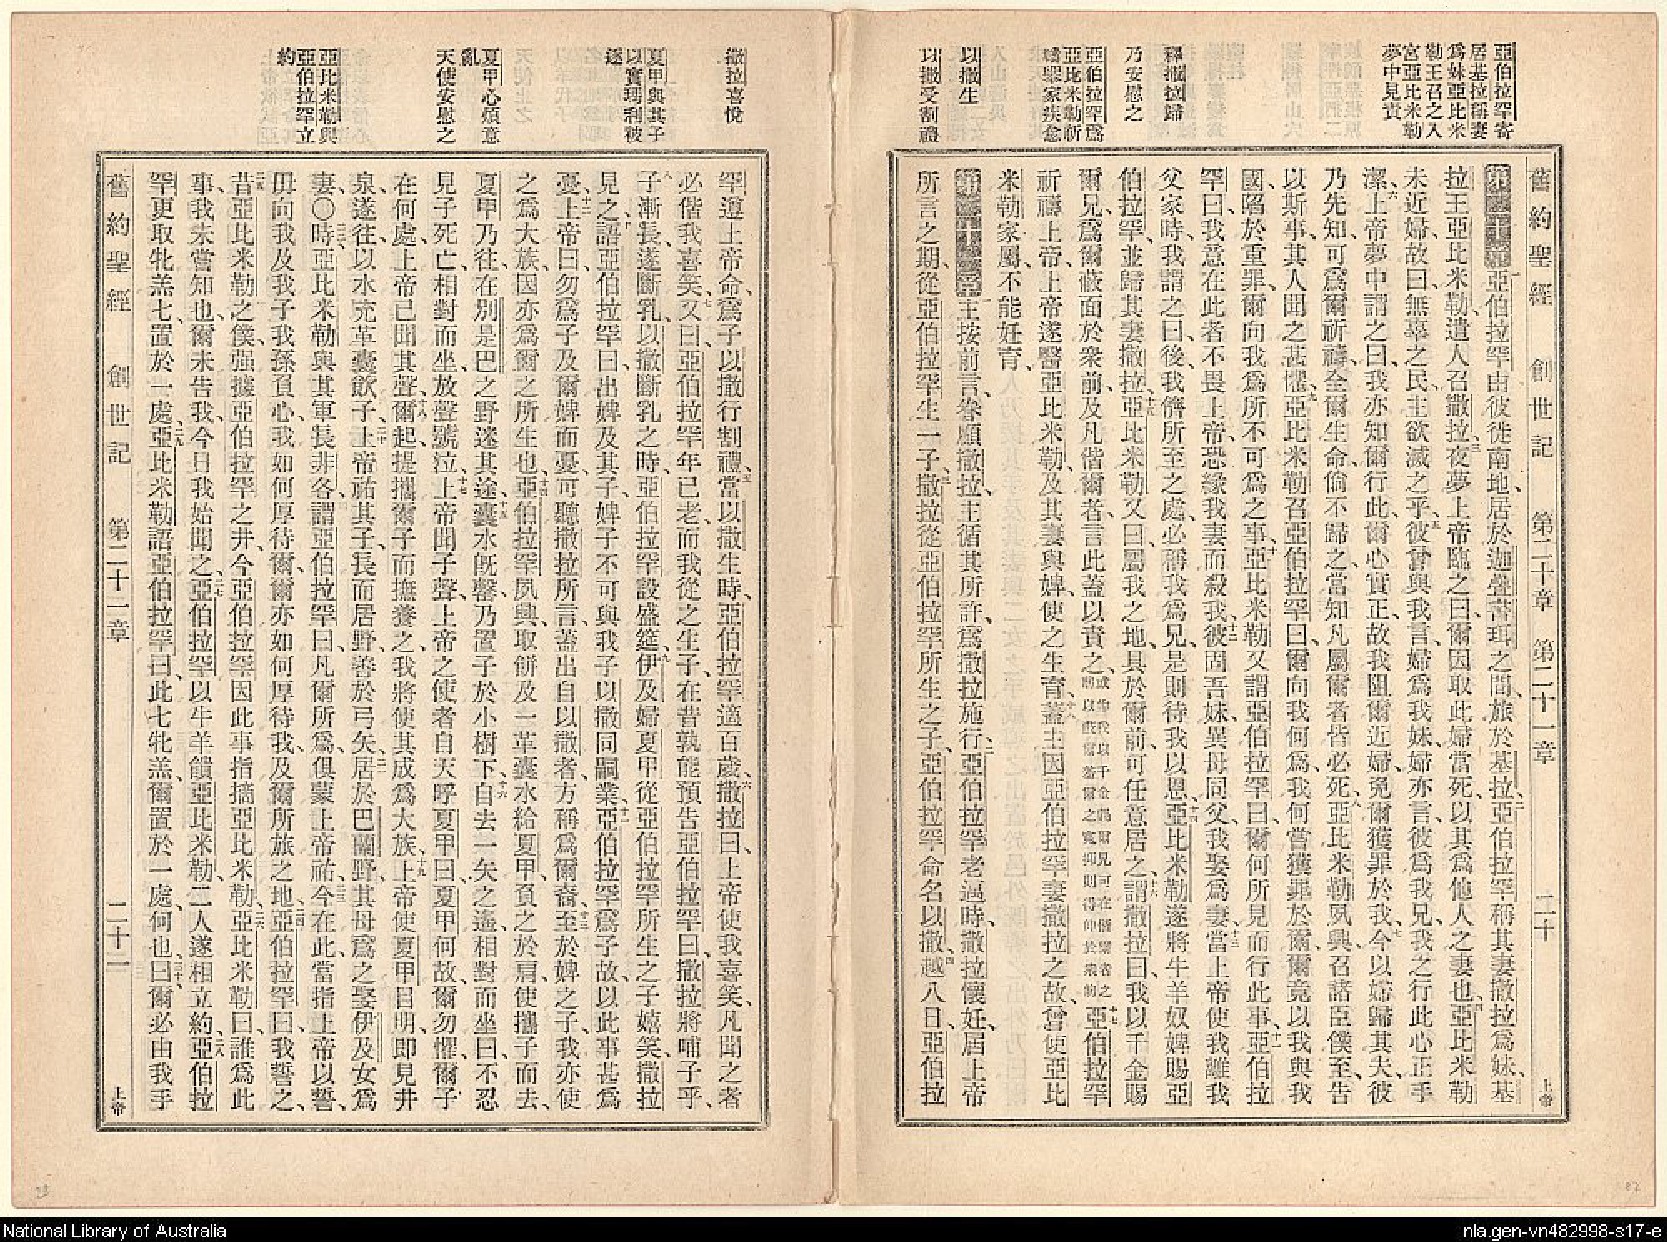 亞伯拉罕寄
居基拉稱妻
爲妹亞比米
勒王召之入
宮亞比米勒
夢中見責
釋撒拉歸
乃安慰之
亞伯拉罕爲
亞比米勒祈
禱舉家疾愈
以撒生
以撒受割禮
舊約聖經 創世記 第二十章 第二十一章 二十 上帝
第二十章亞伯拉罕由彼徙南地、居於迦疊書珥之間、旅於基拉、二亞伯拉罕稱其妻撒拉爲妹、基
拉王亞比米勒遣人召撒拉、三夜夢上帝臨之曰、爾因取此婦當死、以其爲他人之妻也、四亞比米勒
未近婦、故曰、無辜之民、主欲滅之乎、五彼曾與我言、婦爲我妹、婦亦言、彼爲我兄、我之行此、心正手
潔、六上帝夢中謂之曰、我亦知爾行此、爾心實正、故我阻爾近婦、免爾獲罪於我、七今以婦歸其夫、彼
乃先知、可爲爾祈禱、全爾生命、倘不歸之、當知凡屬爾者皆必死、八亞比米勒夙興、召諸臣僕至、告
以斯事、其人聞之甚懼、九亞比米勒召亞伯拉罕曰、爾向我何爲、我何嘗獲罪於爾、爾竟以我與我
國、陷於重罪、爾向我爲所不可爲之事、十亞比米勒又謂亞伯拉罕曰、爾何所見而行此事、十一亞伯拉
罕曰、我意在此者不畏上帝、恐緣我妻而殺我、十二彼固吾妹、異母同父、我娶爲妻、十三當上帝使我離我
父家時、我謂之曰、後我儕所至之處、必稱我爲兄、是則待我以恩、十四亞比米勒遂將牛羊奴婢賜亞
伯拉罕、並歸其妻撒拉、十五亞比米勒又曰、屬我之地、具於爾前、可任意居之、十六謂撒拉曰、我以千金賜
爾兄、爲爾蔽面於衆前、及凡偕爾者、言此蓋以責之、十七亞伯拉罕
祈禱上帝、上帝遂醫亞比米勒、及其妻與婢、使之生育、十八蓋主因亞伯拉罕妻撒拉之故、曾使亞比
米勒家屬不能妊育、
第二十一章主按前言眷顧撒拉、主循其所許爲撒拉施行、二亞伯拉罕老邁時、撒拉懷妊、屆上帝
所言之期、從亞伯拉罕生一子、三撒拉從亞伯拉罕所生之子、亞伯拉罕命名以撒、四越八日、亞伯拉
撒拉喜悅
夏甲與其子
以實瑪利被
逐
夏甲心煩意
亂
天使安慰之
亞比米勒與
亞伯拉罕立
約
罕遵上帝命、爲子以撒行割禮、五當以撒生時、亞伯拉罕適百歲、六撒拉曰、上帝使我喜笑、凡聞之者
必偕我喜笑、七又曰、亞伯拉罕年已老、而我從之生子、在昔孰能預告亞伯拉罕曰、撒拉將哺子乎、
八子漸長、遂斷乳、以撒斷乳之時、亞伯拉罕設盛筵、九伊及婦夏甲從亞伯拉罕所生之子嬉笑、撒拉
見之、十語亞伯拉罕曰、出婢及其子、婢子不可與我子以撒同嗣業、十一亞伯拉罕爲子故、以此事甚爲
憂、十二上帝曰、勿爲子及爾婢而憂、可聽撒拉所言、蓋出自以撒者、方稱爲爾裔、十三至於婢之子、我亦使
之爲大族、因亦爲爾之所生也、十四亞伯拉罕夙興、取餅及一革囊水給夏甲、負之於肩、使攜子而去、
夏甲乃往、在別是巴之野迷其途、十五囊水既罄、乃置子於小樹下、十六自去一矢之遙、相對而坐、曰、不忍
見子死亡、相對而坐、放聲號泣、十七上帝聞子聲、上帝之使者自天呼夏甲曰、夏甲何故、爾勿懼、爾子
在何處、上帝已聞其聲、十八爾起、提攜爾子而撫養之、我將使其成爲大族、十九上帝使夏甲目明、即見井
泉、遂往以水充革囊飲子、二十上帝祐其子、長而居野、善於弓矢、二一居於巴蘭野、其母爲之娶伊及女爲
妻、〇二二時亞比米勒與其軍長非各謂亞伯拉罕曰、凡爾所爲、俱蒙上帝祐、二三今在此當指上帝以誓、
毋向我及我子我孫負心、我如何厚待爾、爾亦如何厚待我、及爾所旅之地、二四亞伯拉罕曰、我誓之、
二五昔亞比米勒之僕、强據亞伯拉罕之井、今亞伯拉罕因此事指摘亞比米勒、二六亞比米勒曰、誰爲此
事、我未嘗知也、爾未告我、今日我始聞之、二七亞伯拉罕以牛羊饋亞比米勒、二人遂相立約、二八亞伯拉
罕更取牝羔七、置於一處、二九亞比米勒語亞伯拉罕曰、此七牝羔、爾置於一處、何也、三十曰、爾必由我手
舊約聖經 創世記 第二十一章 二十一 上帝
National Library of Australia
nla.gen-vn482998-s17-e